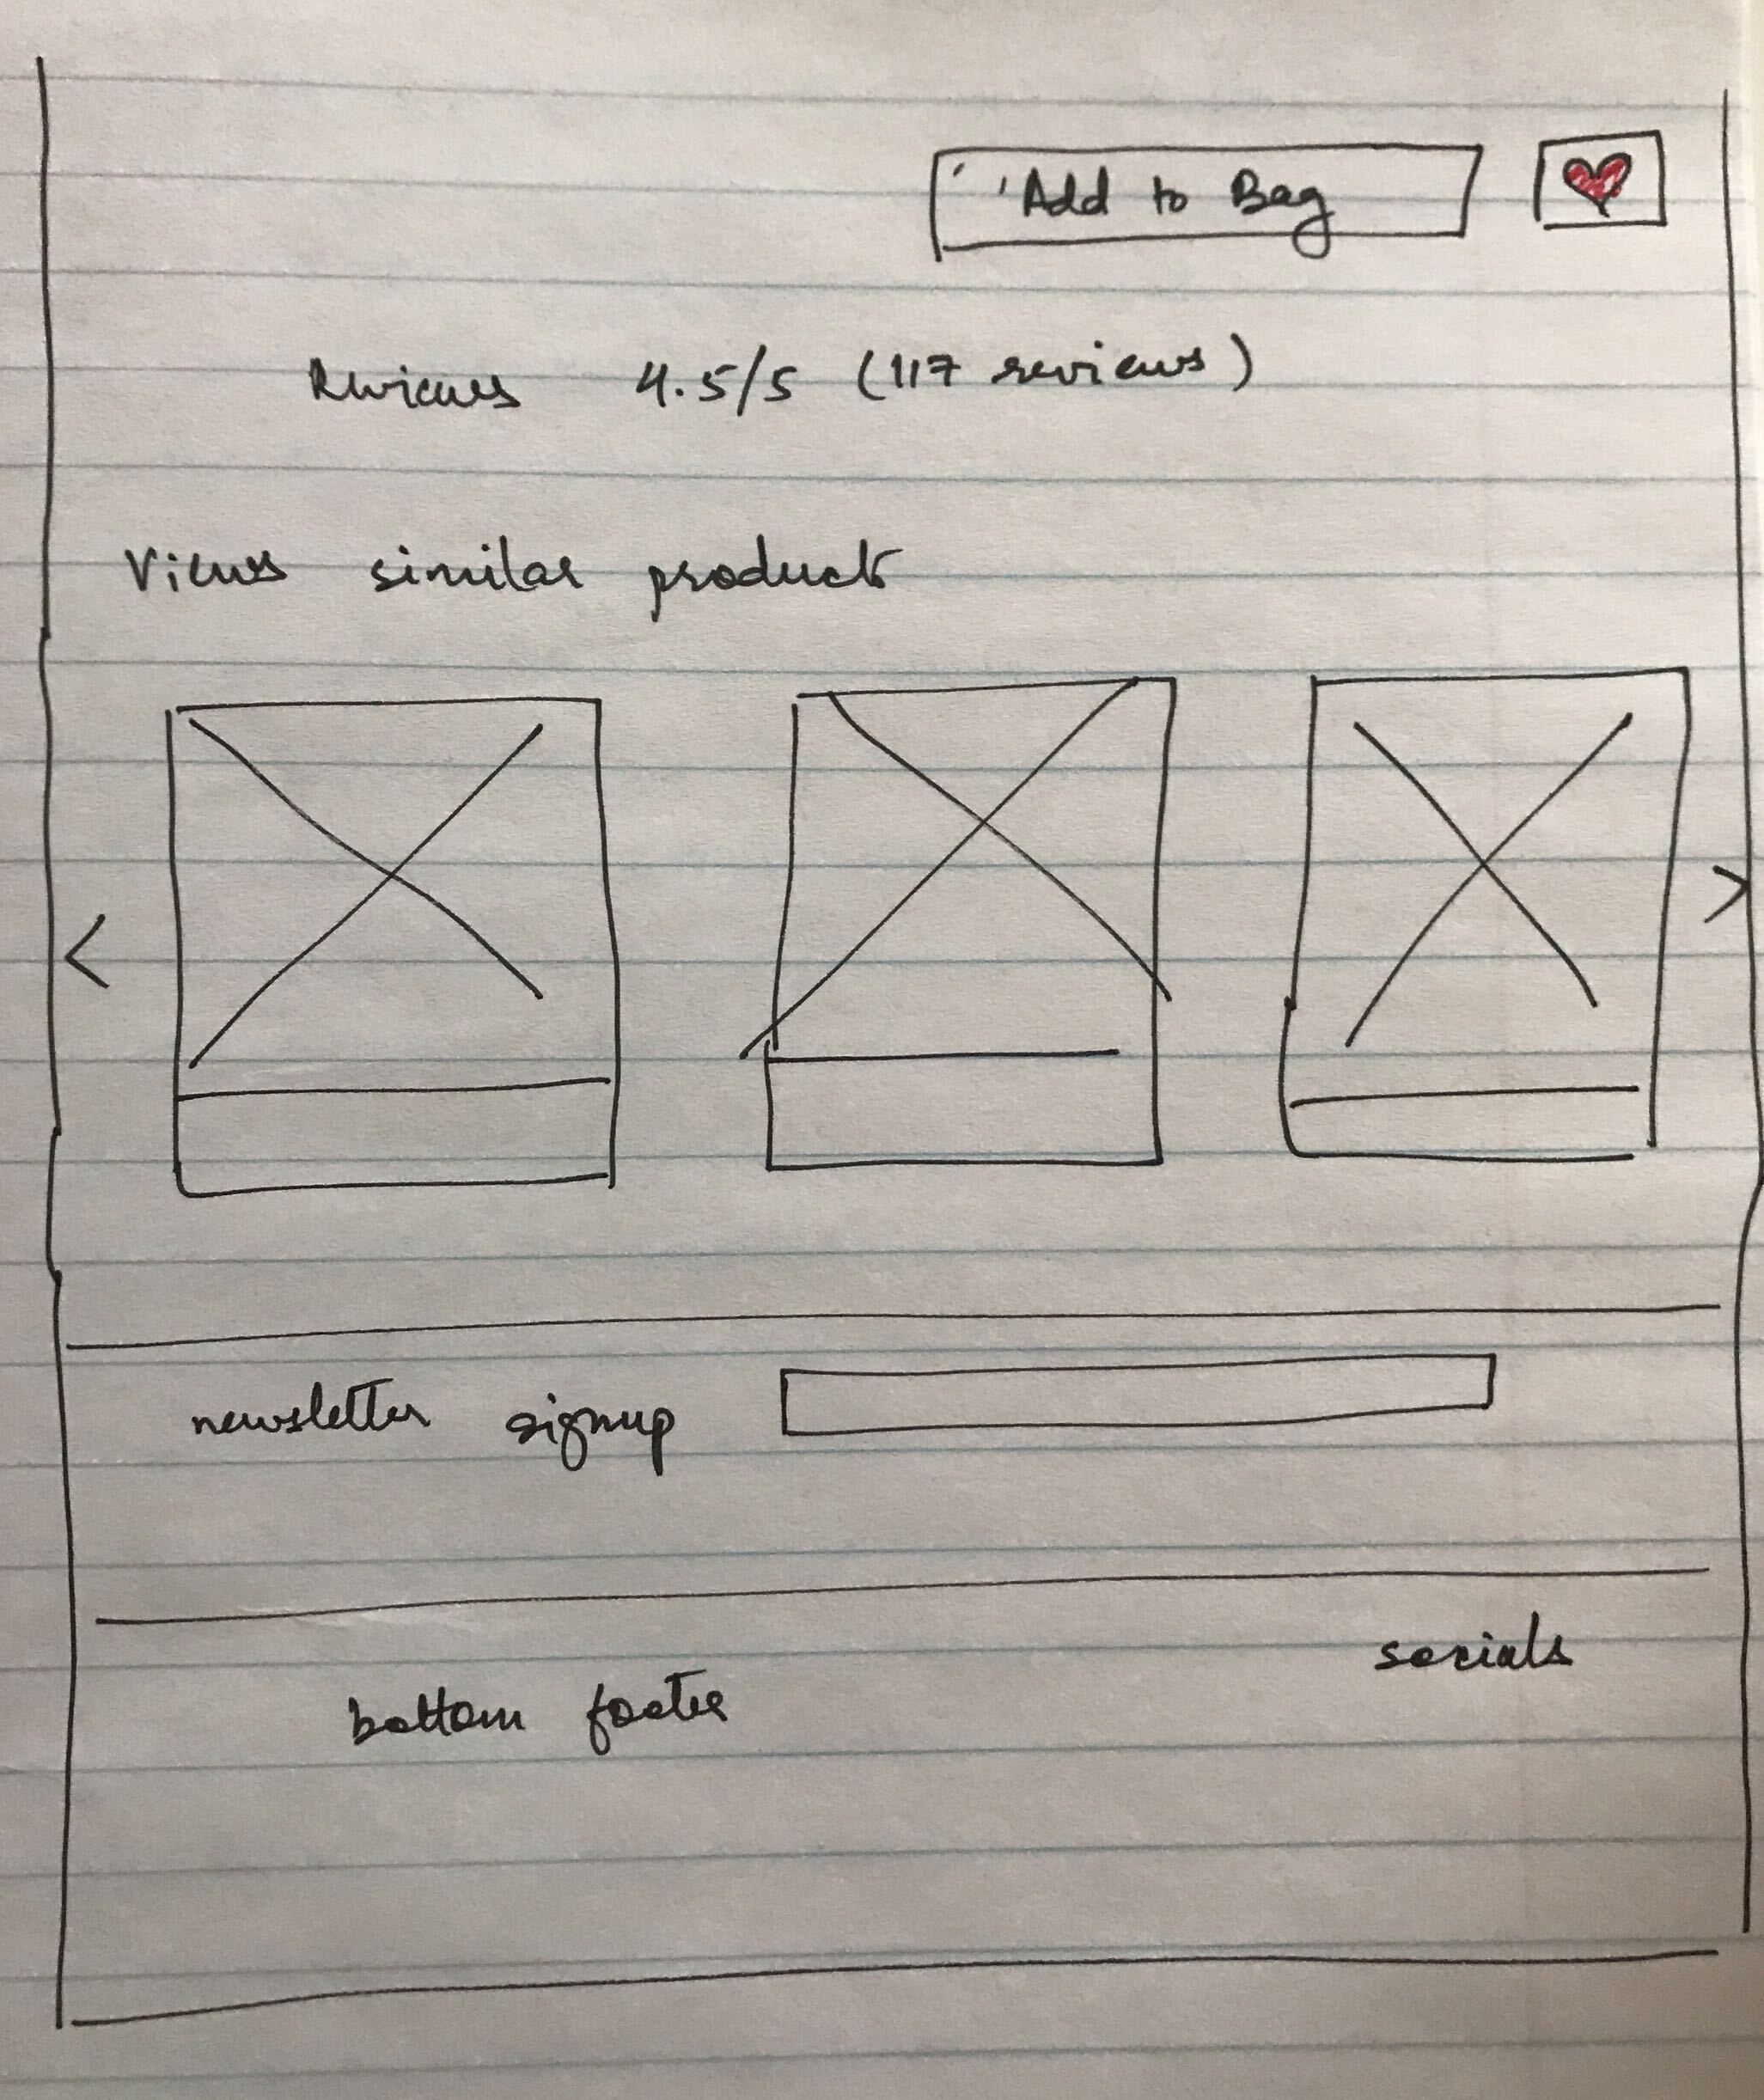 Add to Bag
Reviews 4.5/5 (117 reviews)
Views similar products
<
>
newsletter signup
socials
bottom footer